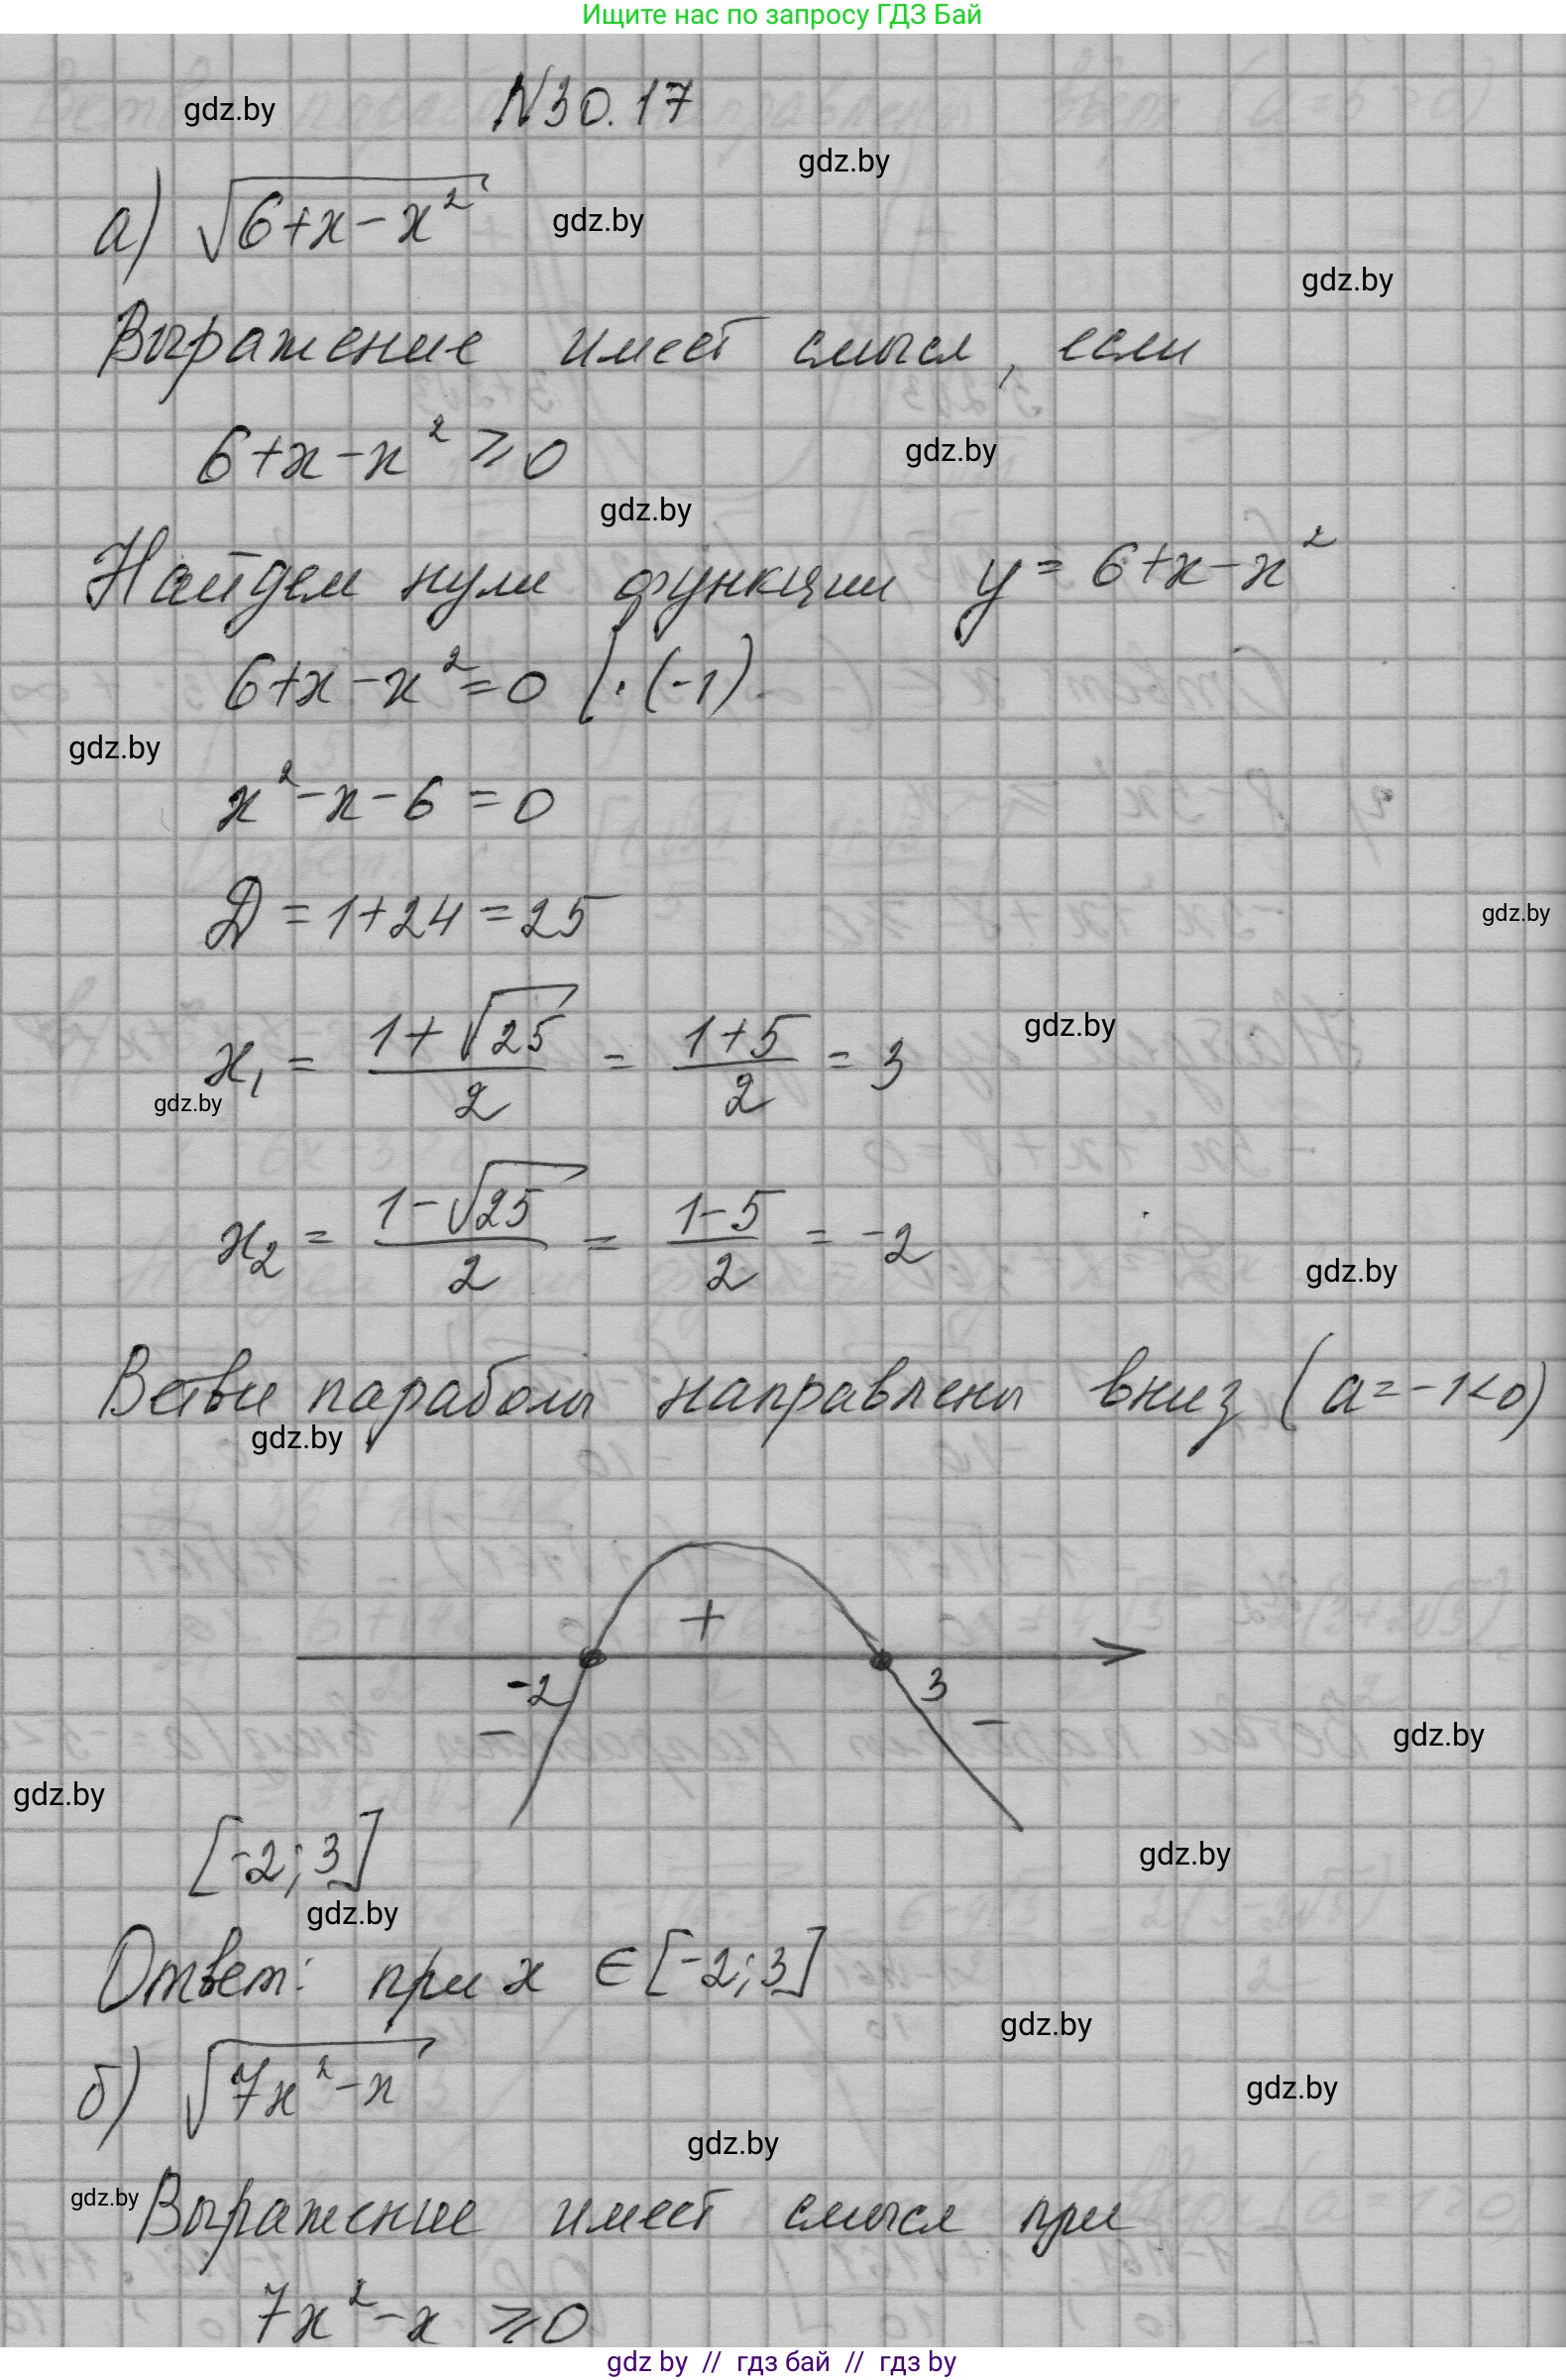 Ищите нас по запросу ГДЗ Бай
gdz.by
N30.17
gdz.by
а) √(6+x-x²)
gdz.by
gdz.by
Выражение имеет смысл, если
6+x-x² ⩾ 0
gdz.by
gdz.by
Найдем нули функции y = 6+x-x²
6+x-x²=0 |·(-1)
gdz.by
x²-x-6=0
D = 1+24 = 25
gdz.by
x₁ = (1+√25)/2 = (1+5)/2 = 3
gdz.by
gdz.by
x₂ = (1-√25)/2 = (1-5)/2 = -2
gdz.by
Ветви параболы направлены вниз (a=-1<0)
gdz.by
+
-2
3
-
-
gdz.by
gdz.by
[-2; 3]
gdz.by
gdz.by
Ответ: при x ∈ [-2; 3]
gdz.by
б) √(7x²-x)
gdz.by
gdz.by
gdz.by
Выражение имеет смысл при
7x²-x ⩾ 0
gdz.by // гдз бай // гдз by